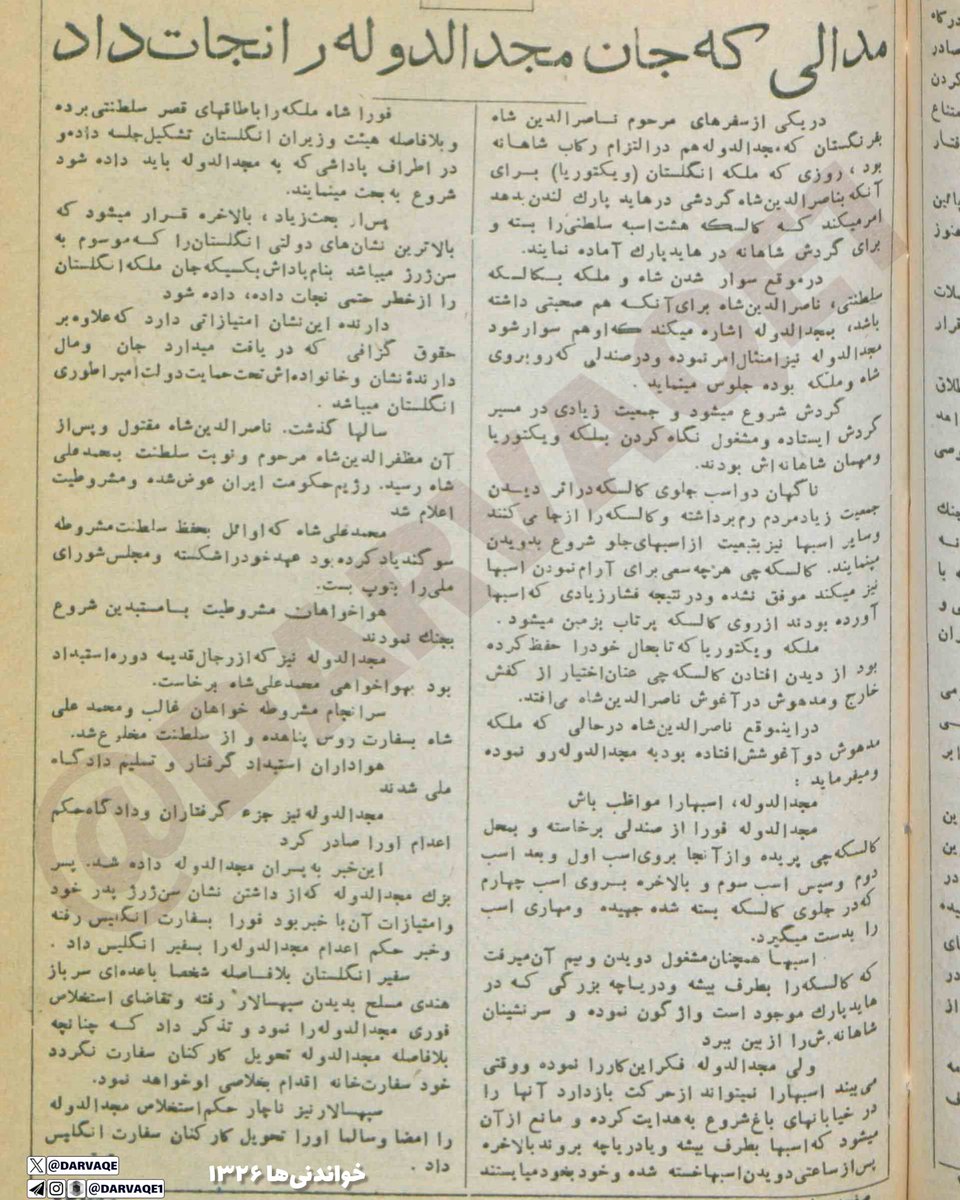 مدالی که جان مجدالدوله را نجات داد
در یکی از سفرهای مرحوم ناصرالدین شاه
بفرنگستان که مجدالدوله هم در التزام رکاب شاهانه
بود، روزی که ملکه انگلستان (ویکتوریا) برای
آنکه بناصرالدین شاه گردشی در هاید پارك لندن بدهد
امر میکند که کالسکه هشت اسبه سلطنتی را بسته و
برای گردش شاهانه در هاید پارك آماده نمایند.
در موقع سوار شدن شاه و ملکه بکالسکه
سلطنتی، ناصرالدین شاه برای آنکه هم صحبتی داشته
باشد، بمجدالدوله اشاره میکند که او هم سوار شود
مجدالدوله نیز امتثال امر نموده و در صندلی که روبروی
شاه و ملکه بوده جلوس مینماید.
گردش شروع میشود و جمعیت زیادی در مسیر
گردش ایستاده و مشغول نگاه کردن بملکه ویکتوریا
و مهمان شاهانه اش بودند.
ناگهان دو اسب جلوی کالسکه در اثر دیدن
جمعیت زیاد مردم رم برداشته و کالسکه را از جا می کنند
و سایر اسبها نیز بتبعیت از اسبهای جلو شروع بدویدن
مینمایند. کالسکه چی هر چه سعی برای آرام نمودن اسبها
نیز میکند موفق نشده و در نتیجه فشار زیادی که اسبها
آورده بودند از روی کالسکه پرتاب بزمین میشود.
ملکه ویکتوریا که تا بحال خود را حفظ کرده
بود از دیدن افتادن کالسکه چی عنان اختیار از کفش
خارج و مدهوش در آغوش ناصرالدین شاه می افتد.
در اینموقع ناصرالدین شاه در حالی که ملکه
مدهوش دو آغوشش افتاده بود به مجدالدوله رو نموده
و میفرماید :
مجدالدوله، اسبها را مواظب باش
مجدالدوله فورا از صندلی برخاسته و بمحل
کالسکه چی پریده و از آنجا بروی اسب اول و بعد اسب
دوم و سپس اسب سوم و بالاخره بروی اسب چهارم
که در جلوی کالسکه بسته شده جهیده و مهاری اسب
را بدست میگیرد.
اسبها همچنان مشغول دویدن و بیم آن میرفت
که کالسکه را بطرف بیشه و دریاچه بزرگی که در
هاید پارك موجود است واژگون نموده و سرنشینان
شاهانه ش را از بین ببرد
ولی مجدالدوله فکر این کار را نموده و وقتی
می بیند اسبها را نمیتواند از حرکت باز دارد آنها را
در خیابانهای باغ شروع به هدایت کرده و مانع از آن
میشود که اسبها بطرف بیشه و یا دریاچه بروند بالاخره
پس از ساعتی دویدن اسبها خسته شده و خود بخود میایستند
فورا شاه ملکه را باطاقهای قصر سلطنتی برده
و بلافاصله هیئت وزیران انگلستان تشکیل جلسه داده و
در اطراف پاداشی که به مجدالدوله باید داده شود
شروع به بحث مینمایند.
پس از بحث زیاد، بالاخره قرار میشود که
بالاترین نشان های دولتی انگلستان را که موسوم به
سن ژرژ میباشد بنام پاداش بکسیکه جان ملکه انگلستان
را از خطر حتمی نجات داده، داده شود
دارنده این نشان امتیازاتی دارد که علاوه بر
حقوق گزافی که دریافت میدارد جان و مال
دارنده نشان و خانواده اش تحت حمایت دولت امپراطوری
انگلستان میباشد.
سالها گذشت. ناصرالدین شاه مقتول و پس از
آن مظفرالدین شاه مرحوم و نوبت سلطنت بمحمد علی
شاه رسید. رژیم حکومت ایران عوض شده و مشروطیت
اعلام شد
محمد علی شاه که اوائل بحفظ سلطنت مشروطه
سوگند یاد کرده بود عهد خود را شکسته و مجلس شورای
ملی را بتوپ بست.
هواخواهان مشروطیت با مستبدین شروع
بجنك نمودند
مجدالدوله نیز که از رجال قدیمه دوره استبداد
بود بهواخواهی محمد علی شاه برخاست.
سرانجام مشروطه خواهان غالب و محمد علی
شاه بسفارت روس پناهده و از سلطنت مخلوع شد.
هواداران استبداد گرفتار و تسلیم دادگاه
ملی شدند
مجدالدوله نیز جزء گرفتاران و دادگاه حکم
اعدام او را صادر کرد
این خبر به پسران مجدالدوله داده شد. پسر
بزك مجدالدوله که از داشتن نشان سن ژرژ پدر خود
و امتیازات آن با خبر بود فورا بسفارت انگلیس رفته
و خبر حکم اعدام مجدالدوله را بسفیر انگلیس داد.
سفیر انگلستان بلافاصله شخصا با عده ای سرباز
هندی مسلح بدیدن سپهسالار رفته و تقاضای استخلاص
فوری مجدالدوله را نمود و تذکر داد که چنانچه
بلافاصله مجدالدوله تحویل کارکنان سفارت نگردد
خود سفارت خانه اقدام بخلاصی او خواهد نمود.
سپهسالار نیز ناچار حکم استخلاص مجدالدوله
را امضا و سالما او را تحویل کارکنان سفارت انگلیس
داد.
خواندنی ها ۱۳۲۶
@DARVAQE
@DARVAQE1
@DARVAQE1